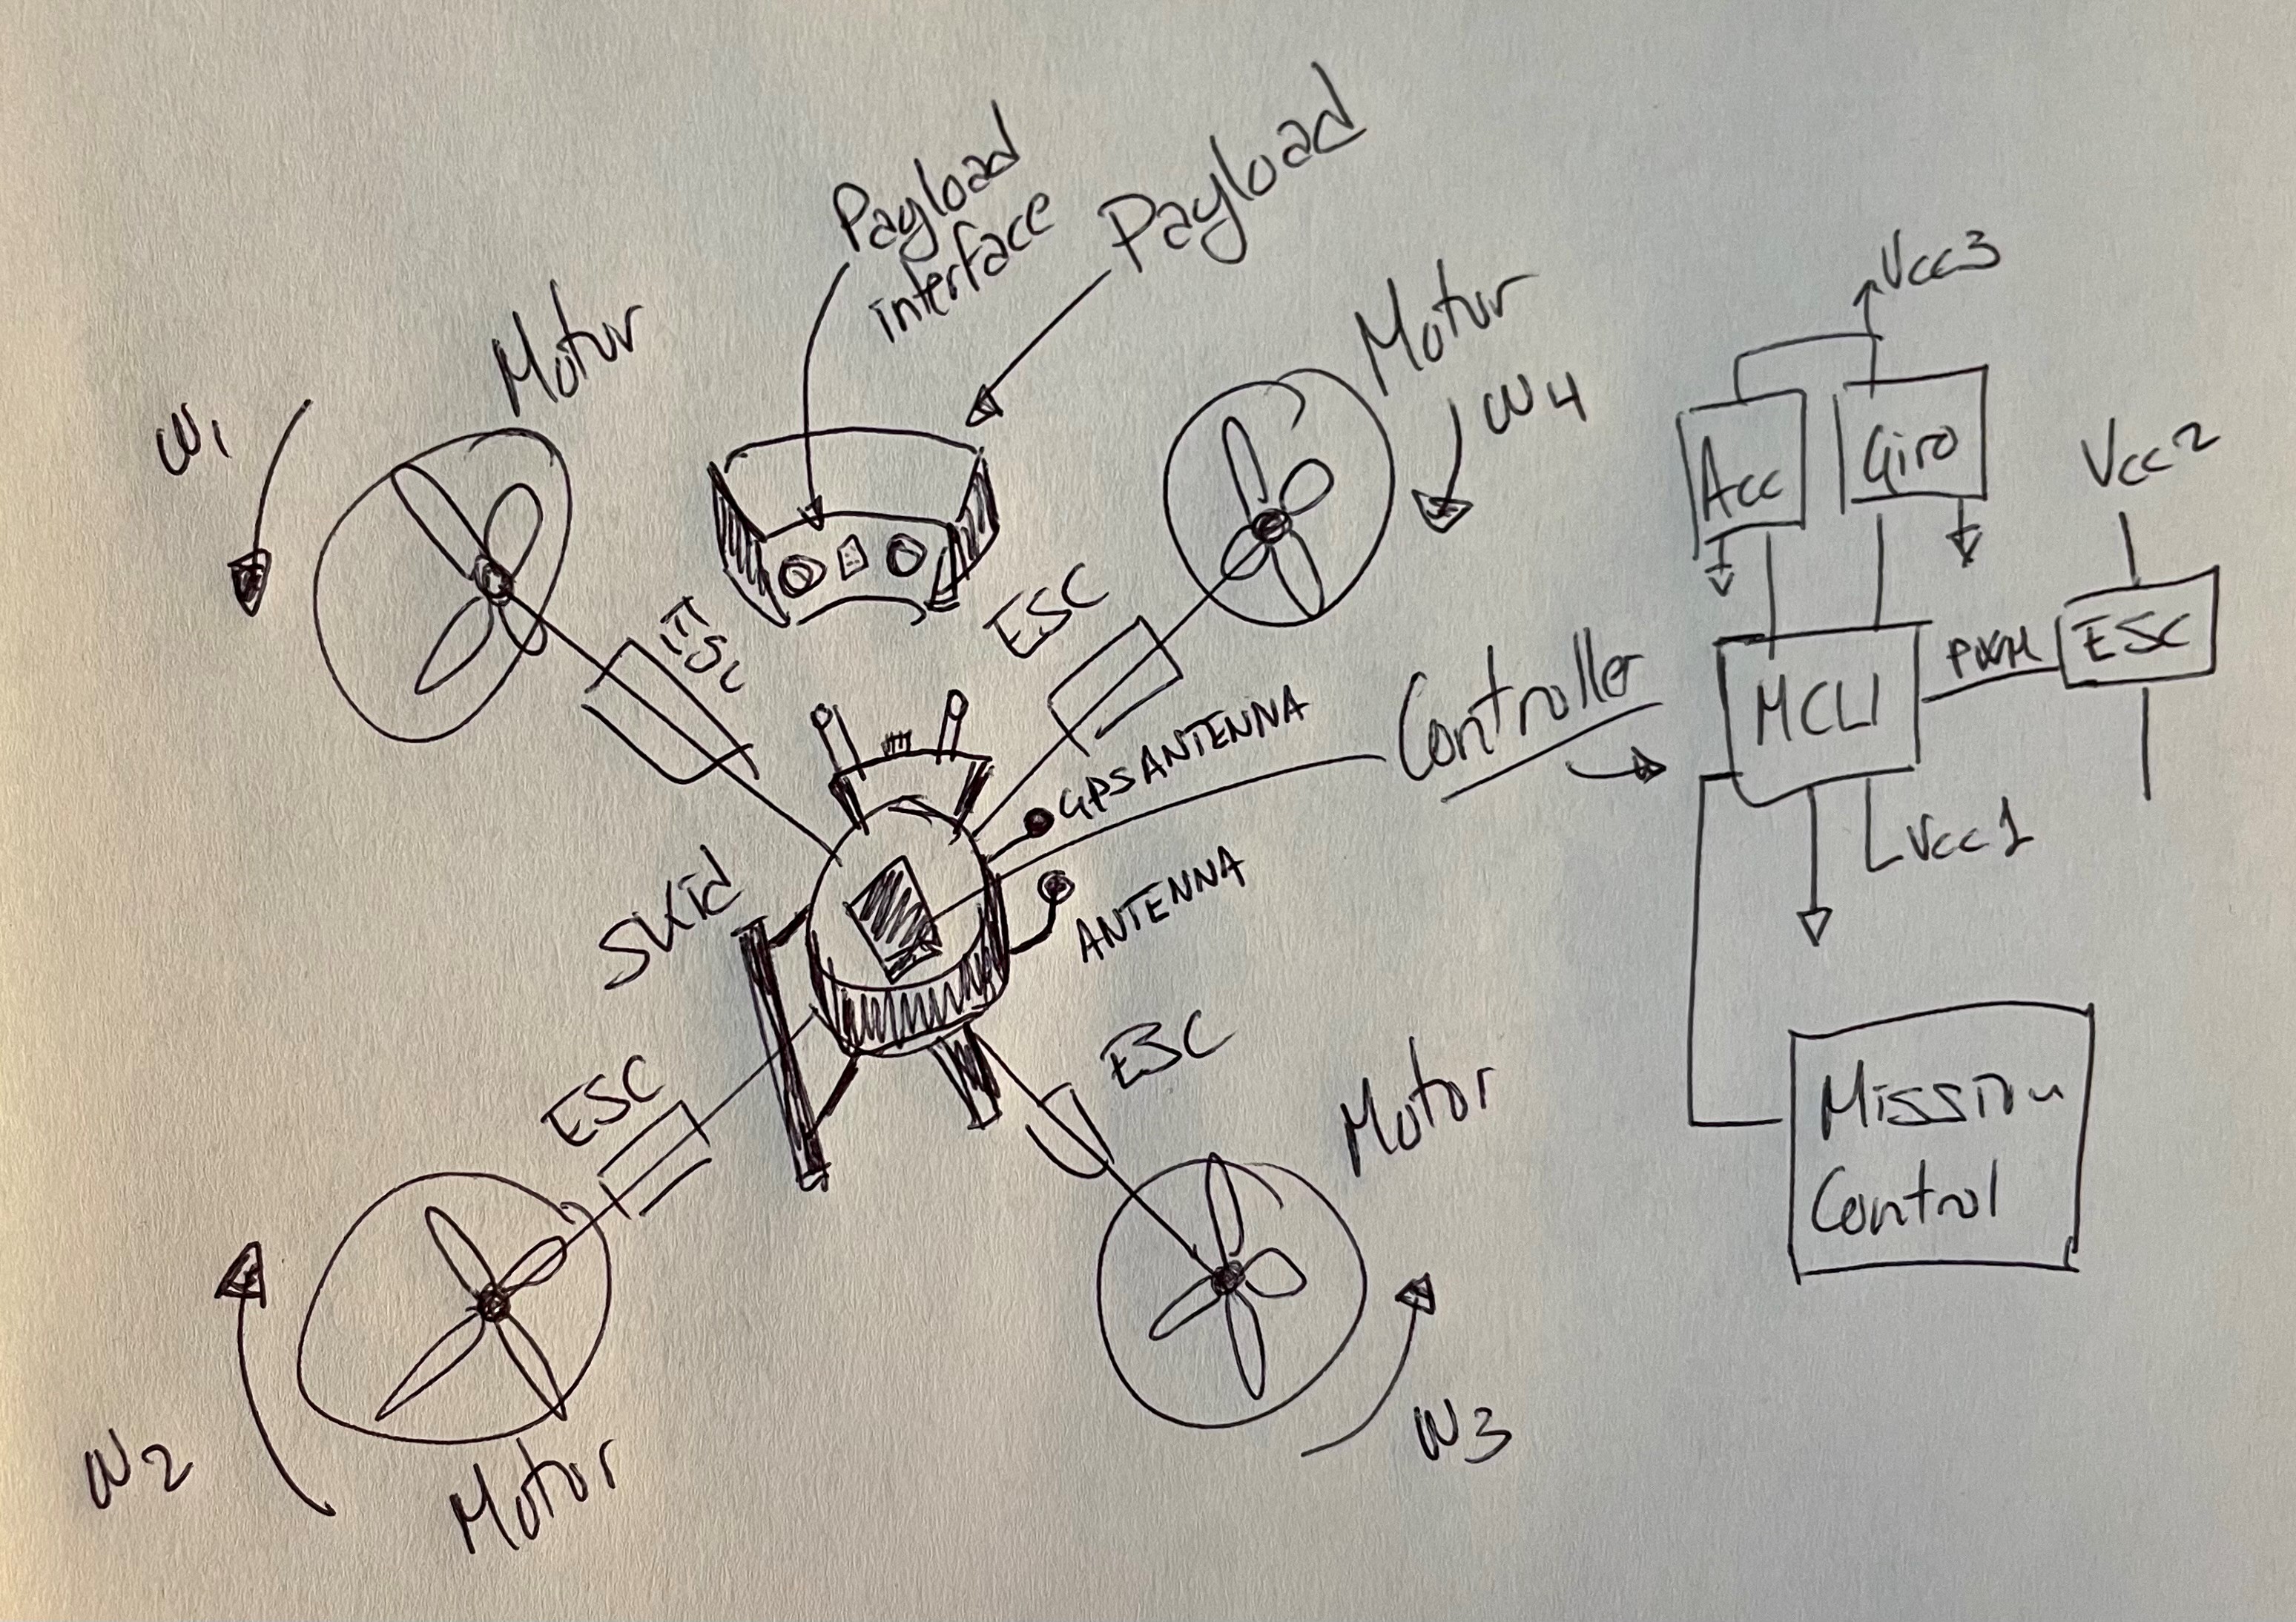 Payload
interface
Payload
Motor
Motor
ω1
ω4
ESC
ESC
GPS ANTENNA
ANTENNA
Controller
Skid
ESC
ESC
Motor
ω2
Motor
ω3
Vcc3
Acc
Giro
Vcc2
MCU
PWM
ESC
Vcc1
Mission
Control